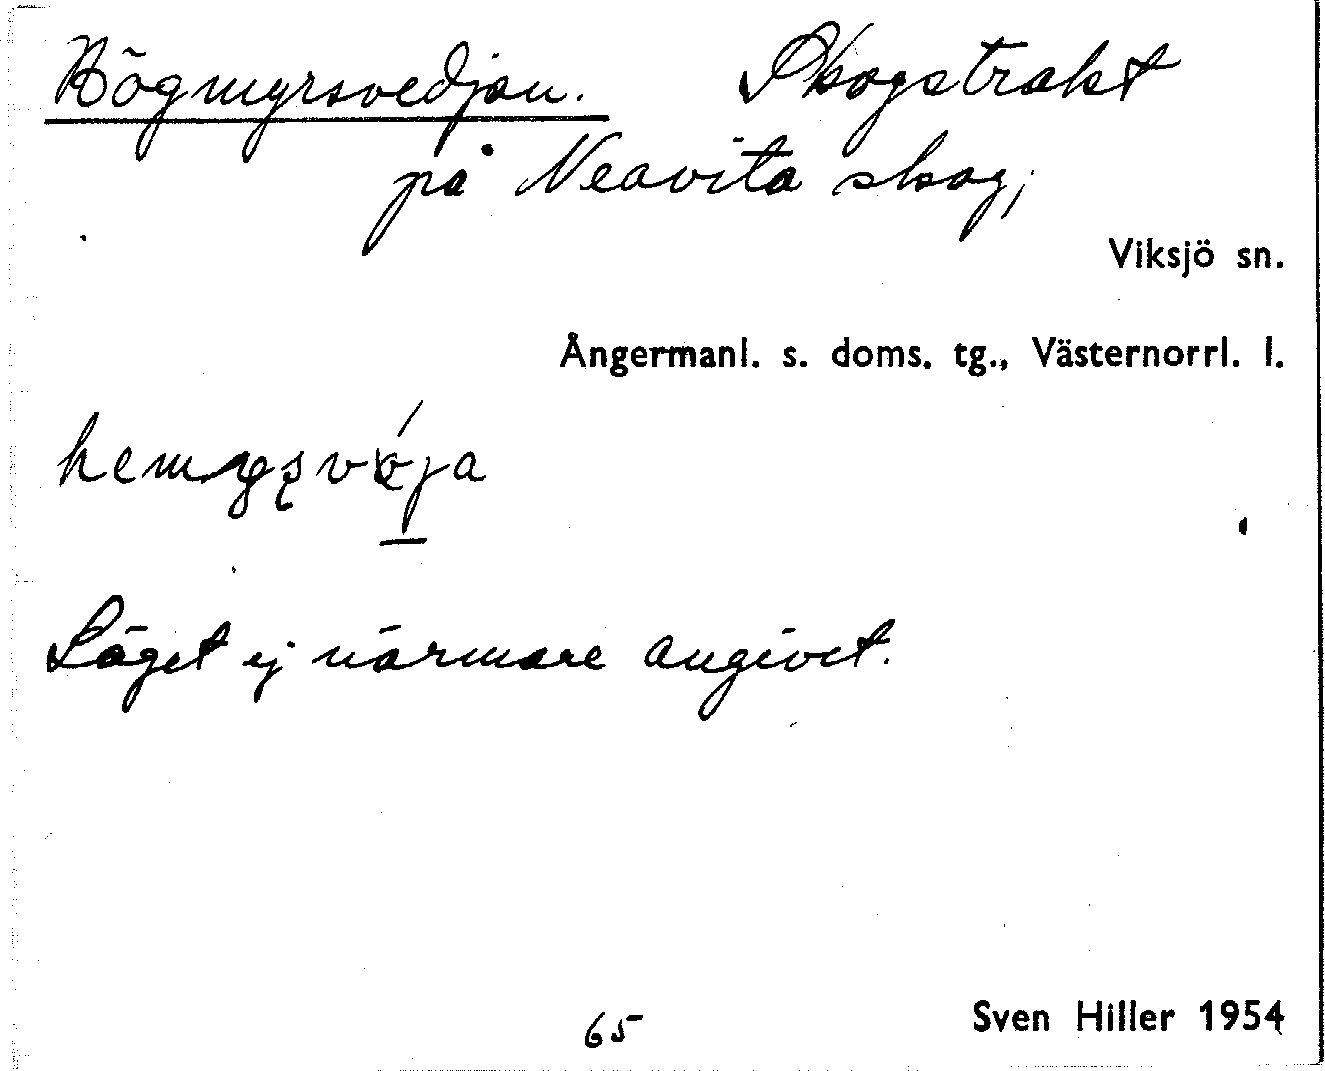 Högmyrsvedjan. Skogstrakt
på Neavita skog,
Viksjö sn.
Ångermanl. s. doms. tg., Västernorrl. l.
Läget ej närmare angivet.
65
Sven Hiller 1954